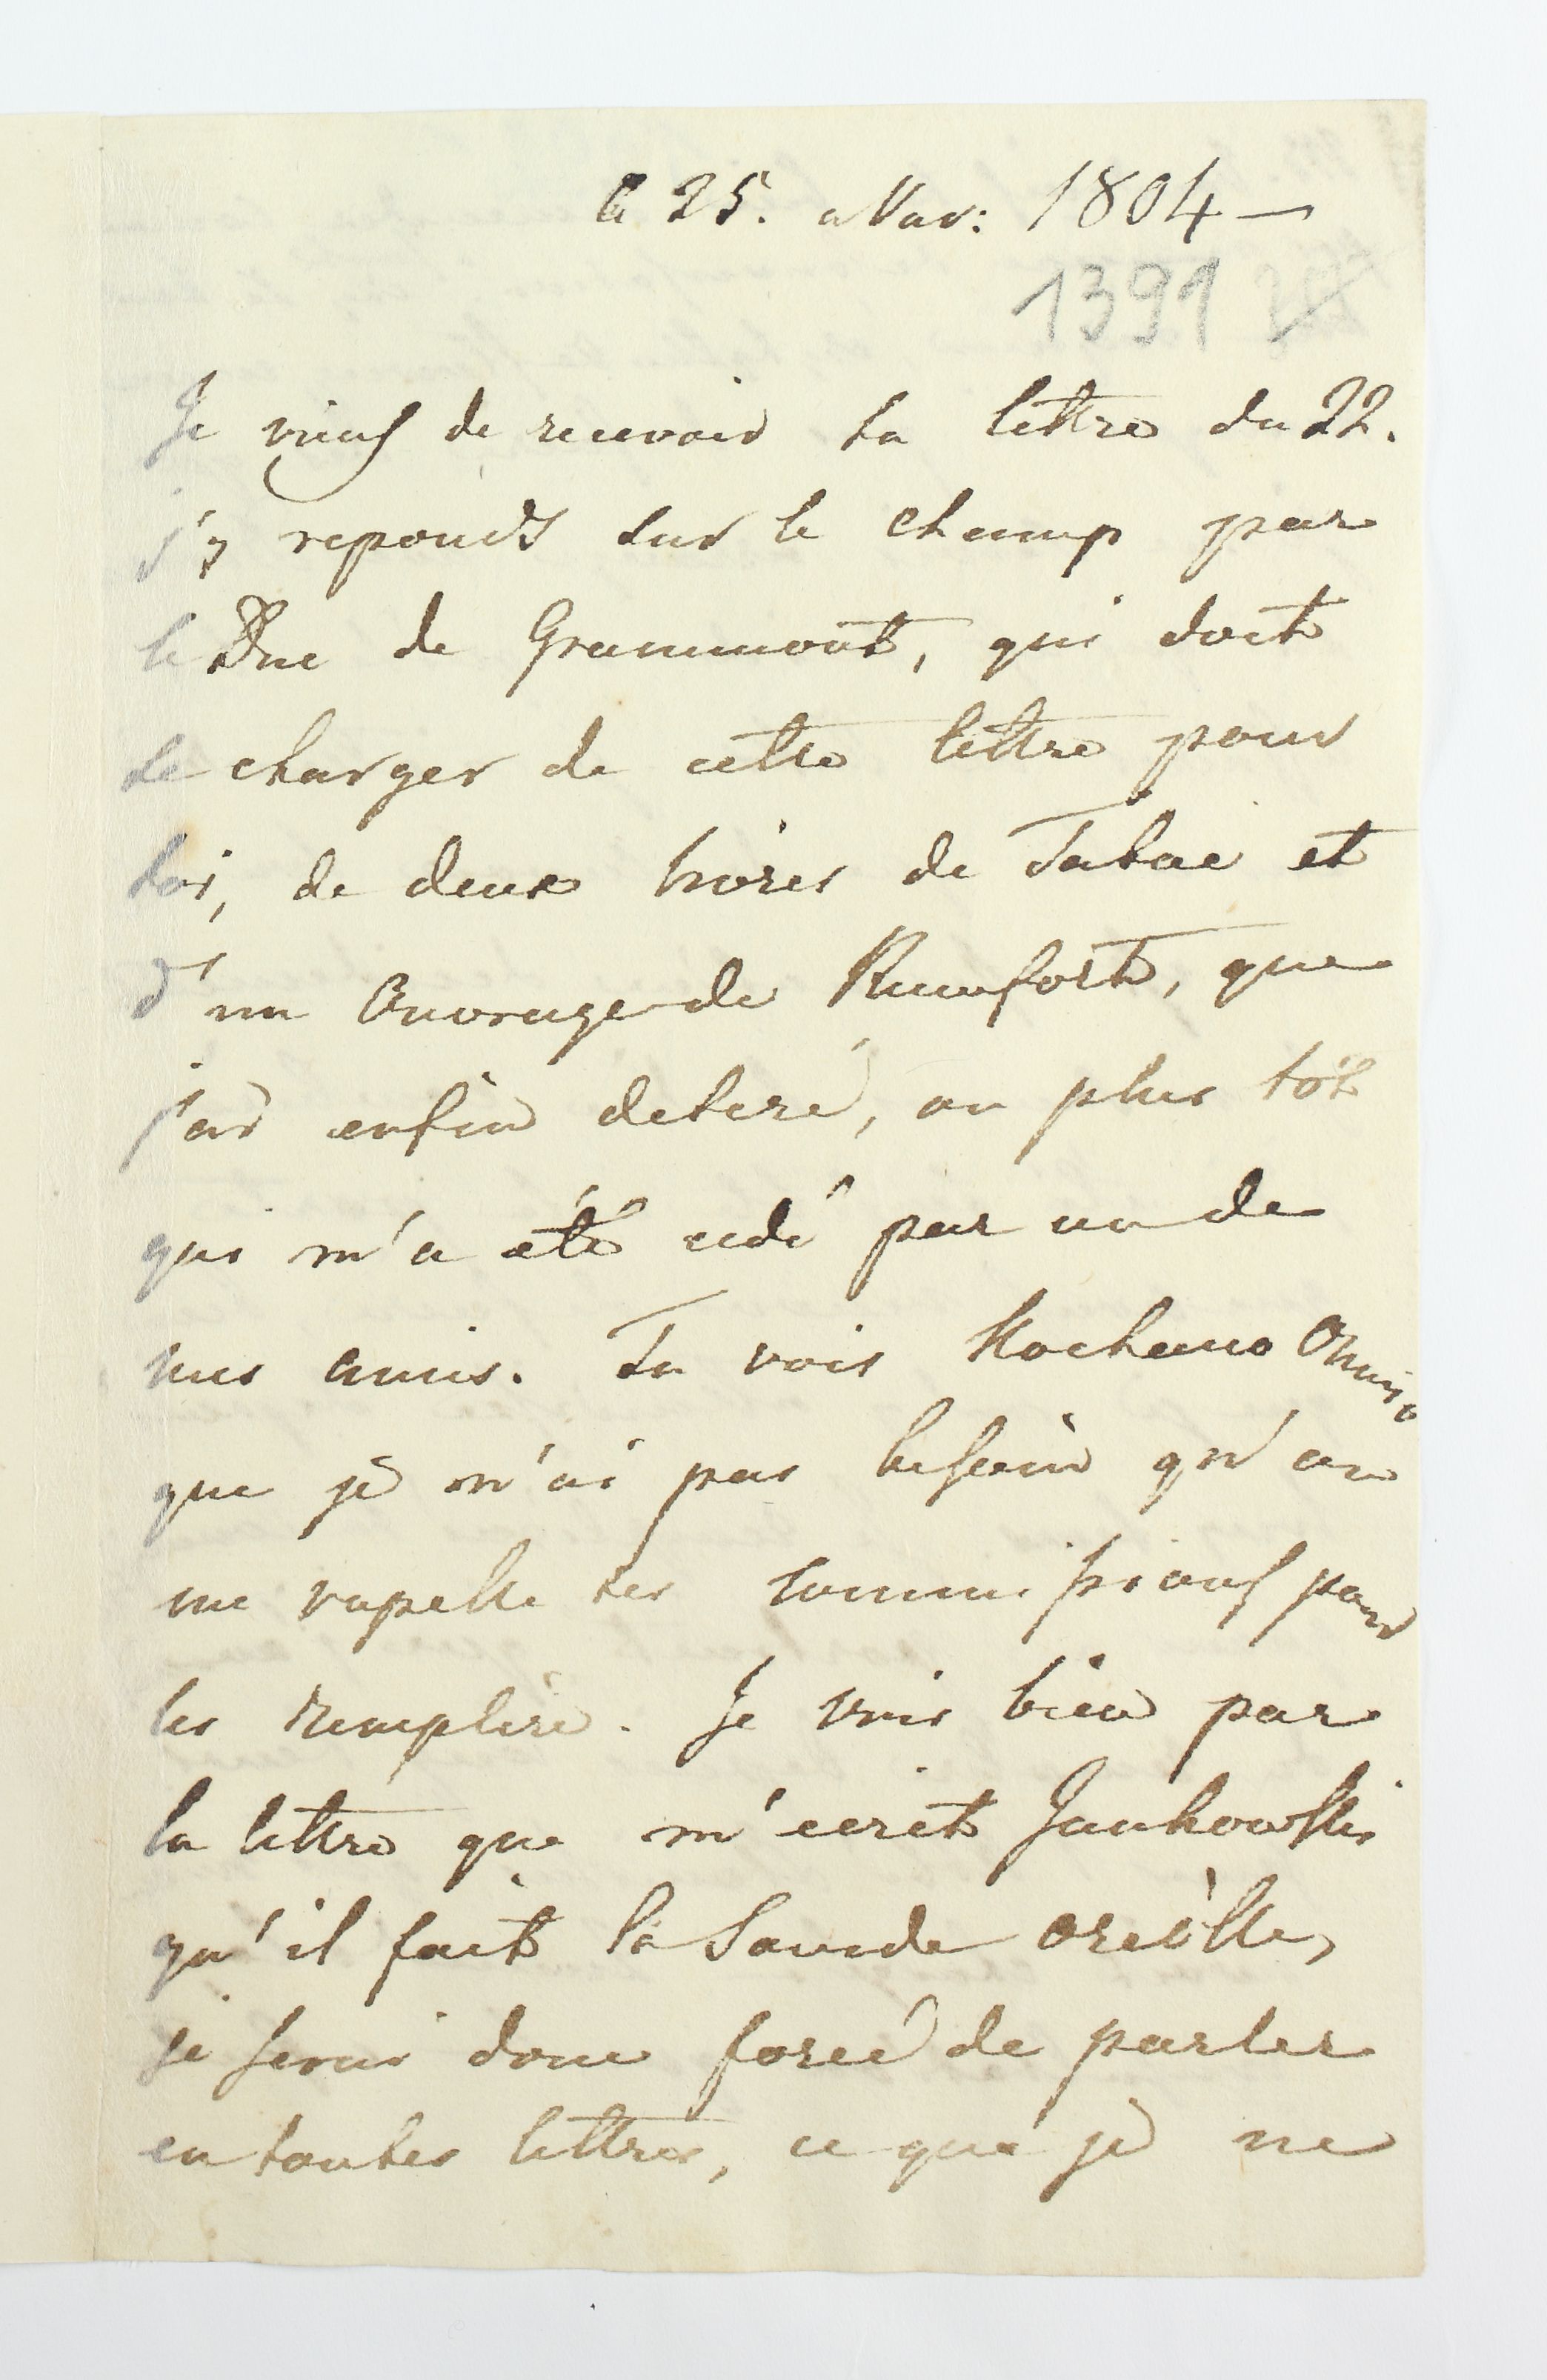 le 25. a Var: 1804 —
1391
Je viens de recevoir ta lettre du 22.
j'y reponds sur le champ par
le Duc de Grammont, qui doit
se charger de cette lettre pour
toi, de deux livres de Tabac et
d'un Ouvrage de Rumfort, que
j'ai enfin deteré, ou plus tôt
qui m'a été cedé par un de
mes amis. Tu vois Kochana Onusia
que je n'ai pas besoin qu'on
me rapelle tes commissions pour
les remplire. Je vois bien par
la lettre que m'ecrit Jankowski
qu'il fait la Sourde oreille,
je serai donc forcé de parler
en toutes lettres, ce que je ne